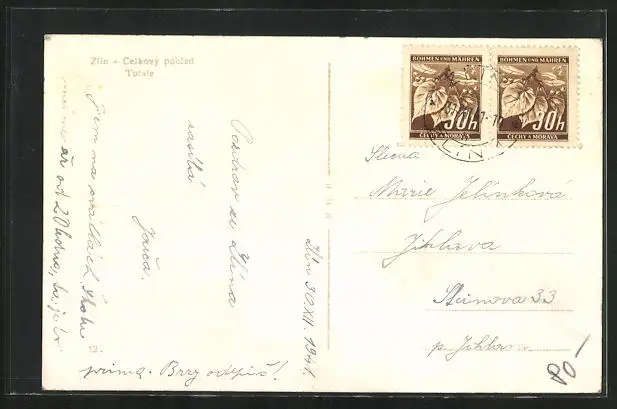 Zlín - Celkový pohled
Totale
BÖHMEN UND MÄHREN
30h
ČECHY A MORAVA
BÖHMEN UND MÄHREN
30h
ČECHY A MORAVA
ZLÍN
Slečna
Marie Jelínková
Jihlava
33
p. Jihlava
Pozdrav ze Zlína
zasílá
Jarča.
Zlín 30.XII. 1941.
Jsem na svátkách
až od 20 hodin, to je
prima. Brzy odepiš!